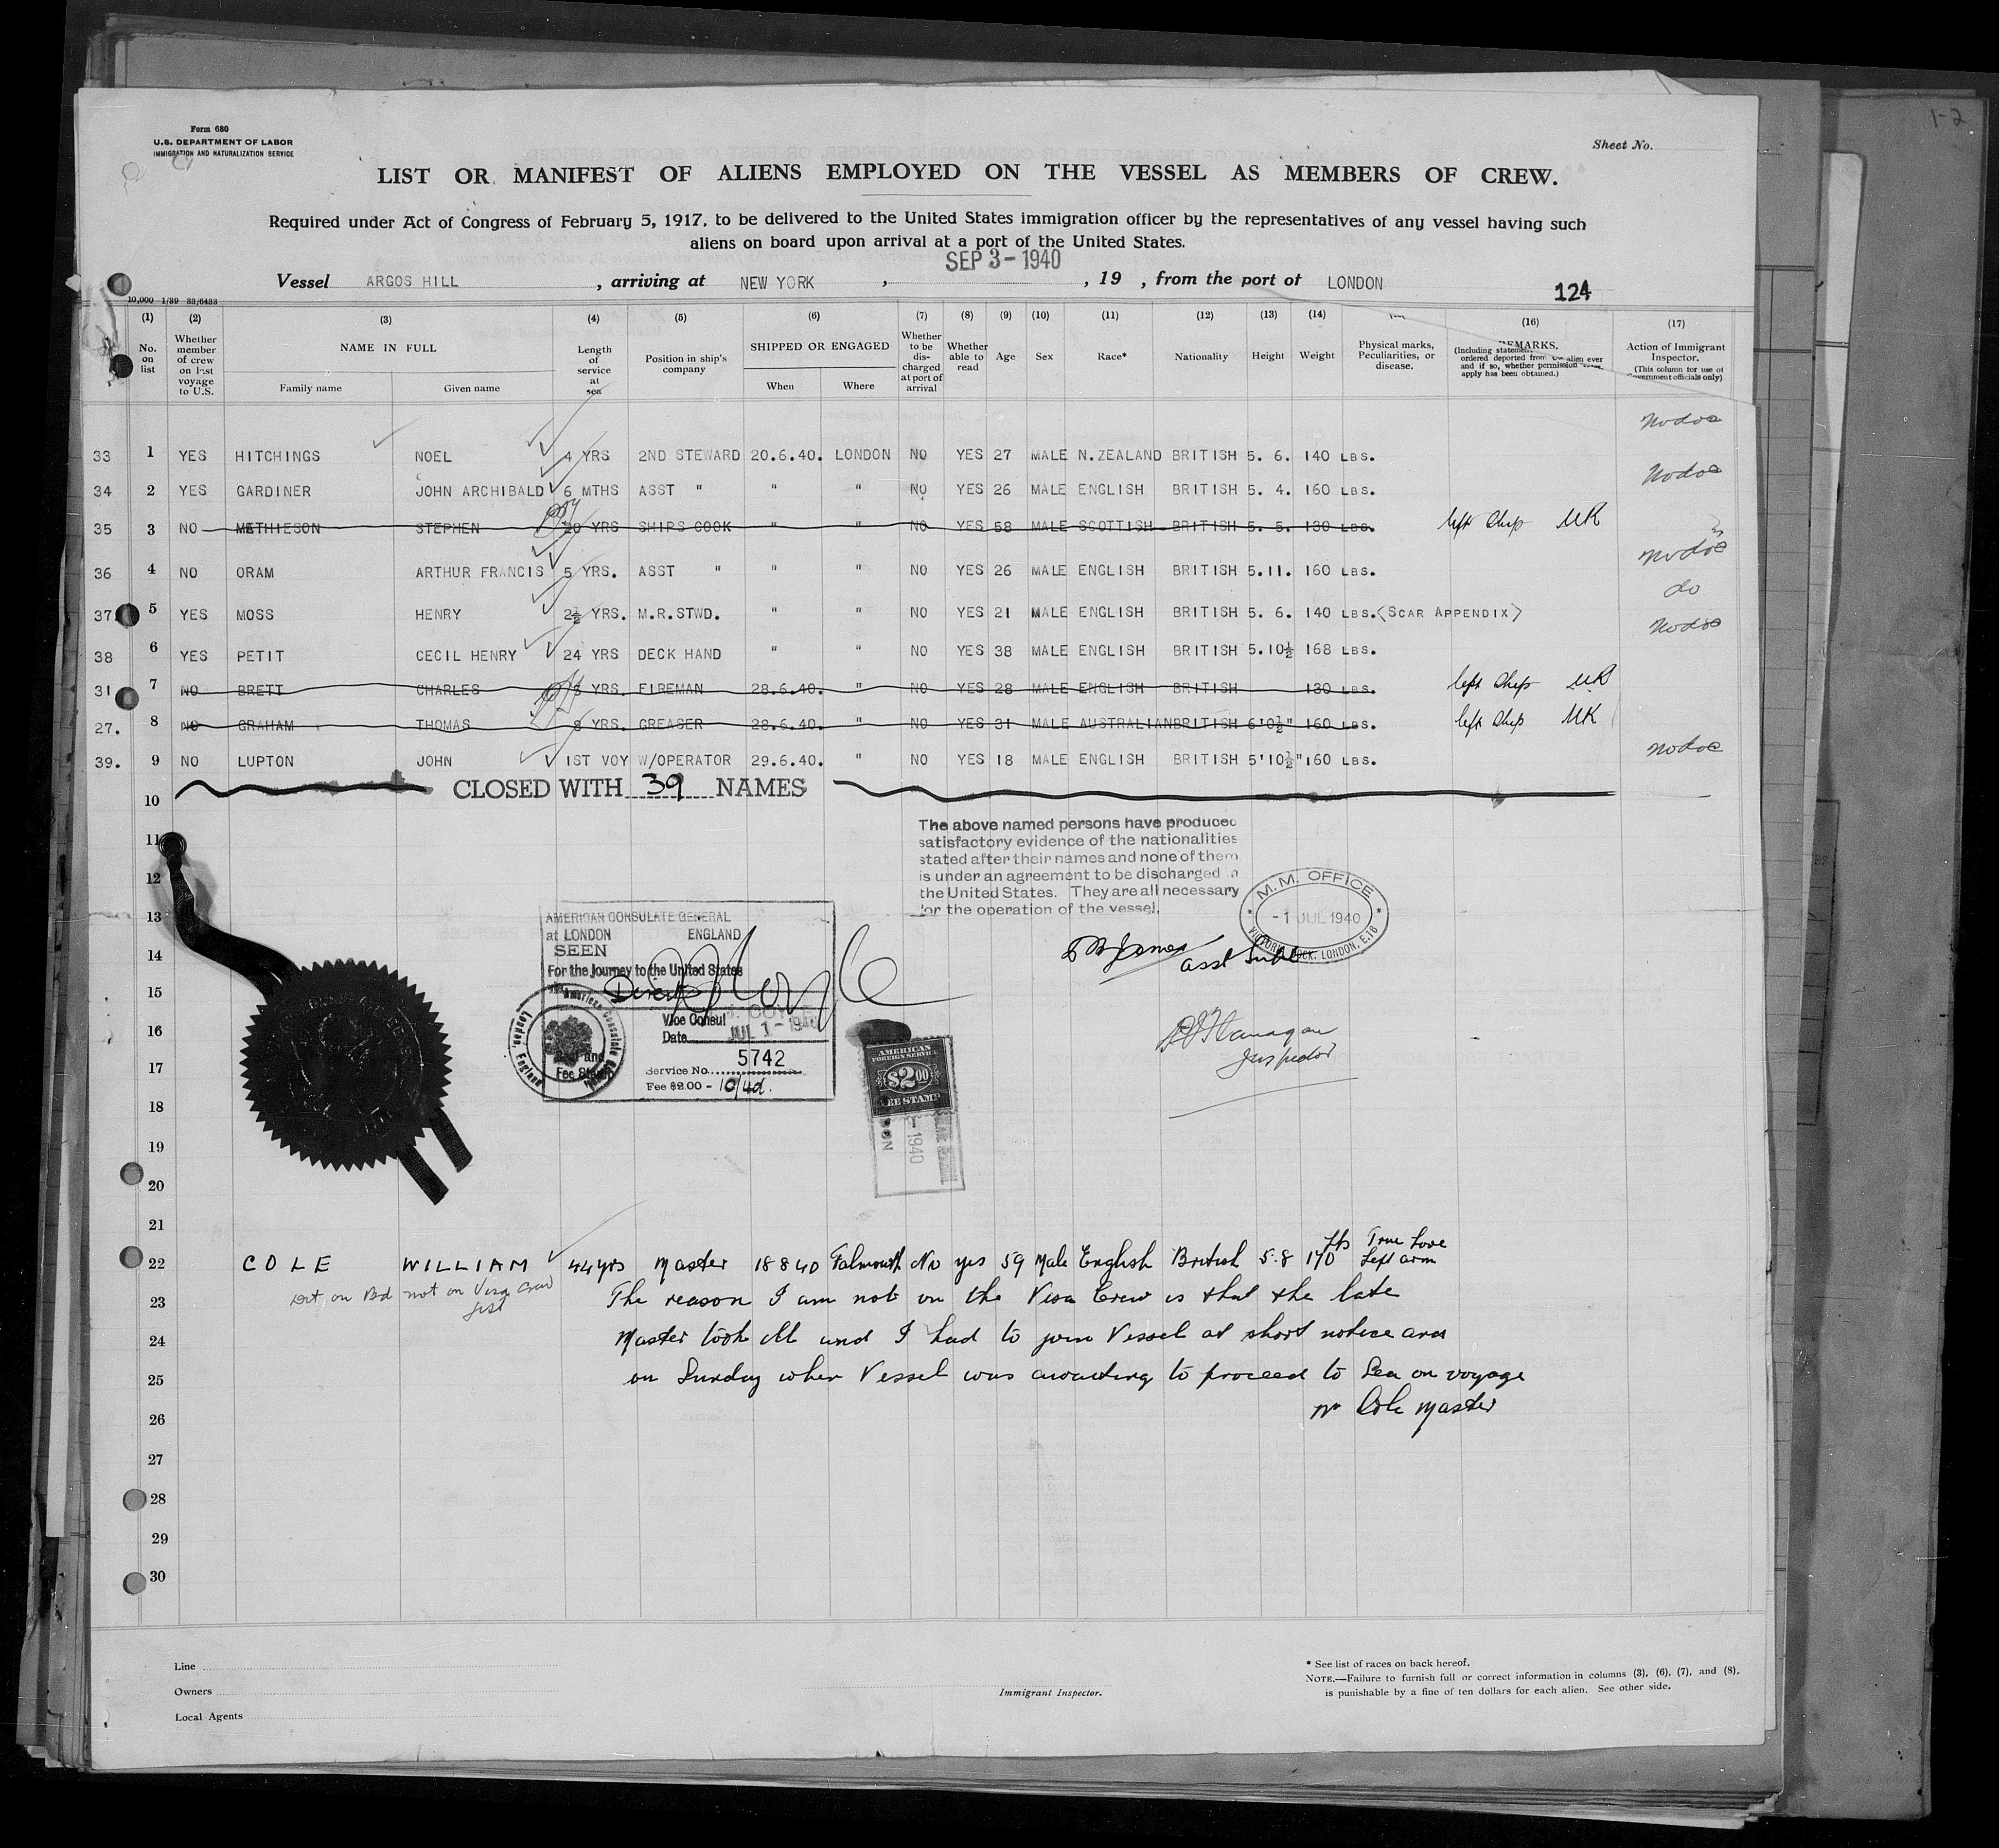 1-2
Form 680
U.S. DEPARTMENT OF LABOR
IMMIGRATION AND NATURALIZATION SERVICE
Sheet No.
LIST OR MANIFEST OF ALIENS EMPLOYED ON THE VESSEL AS MEMBERS OF CREW.
Required under Act of Congress of February 5, 1917, to be delivered to the United States immigration officer by the representatives of any vessel having such
aliens on board upon arrival at a port of the United States.
SEP 3-1940
Vessel ARGOS HILL, arriving at NEW YORK, , 19 , from the port of LONDON
124
10,000 1/39 33/6433
(1) (2) (3) (4) (5) (6) (7) (8) (9) (10) (11) (12) (13) (14) (16) (17)
No. on list
Whether member of crew on last voyage to U.S.
NAME IN FULL
Family name Given name
Length of service at sea
Position in ship's company
SHIPPED OR ENGAGED
When Where
Whether to be discharged at port of arrival
Whether able to read
Age
Sex
Race*
Nationality
Height
Weight
Physical marks, Peculiarities, or disease.
REMARKS.
(Including statement ordered deported from alien ever and if so, whether permission apply has been obtained.)
Action of Immigrant Inspector.
(This column for use of Government officials only)
33 1 YES HITCHINGS NOEL 4 YRS 2ND STEWARD 20.6.40. LONDON NO YES 27 MALE N.ZEALAND BRITISH 5. 6. 140 LBS. nodoc
34 2 YES GARDINER JOHN ARCHIBALD 6 MTHS ASST " " " NO YES 26 MALE ENGLISH BRITISH 5. 4. 160 LBS. nodoc
35 3 NO MATHIESON STEPHEN 20 YRS SHIPS COOK " " NO YES 58 MALE SCOTTISH BRITISH 5. 5. 130 LBS. left Ship UK
36 4 NO ORAM ARTHUR FRANCIS 5 YRS. ASST " " " NO YES 26 MALE ENGLISH BRITISH 5.11. 160 LBS. nodoc
37. 5 YES MOSS HENRY 2½ YRS. M.R.STWD. " " NO YES 21 MALE ENGLISH BRITISH 5. 6. 140 LBS. (SCAR APPENDIX) do
38 6 YES PETIT CECIL HENRY 24 YRS DECK HAND " " NO YES 38 MALE ENGLISH BRITISH 5.10½ 168 LBS. nodoc
31 7 NO BRETT CHARLES YRS. FIREMAN 28.6.40. " NO YES 28 MALE ENGLISH BRITISH 130 LBS. left Ship UK
27. 8 NO GRAHAM THOMAS 8 YRS. GREASER 28.6.40. " NO YES 31 MALE AUSTRALIAN BRITISH 6'0½" 160 LBS. left Ship UK
39. 9 NO LUPTON JOHN 1ST VOY W/OPERATOR 29.6.40. " NO YES 18 MALE ENGLISH BRITISH 5'10½" 160 LBS. nodoc
10 CLOSED WITH 39 NAMES
11
The above named persons have produced
satisfactory evidence of the nationalities
stated after their names and none of them
is under an agreement to be discharged in
the United States. They are all necessary
for the operation of the vessel.
12
13
14
15
16
17
18
19
20
21
M.M. OFFICE
-1 JUL 1940
VICTORIA DOCK. LONDON, E.16
Asst Supt
Inspector
AMERICAN CONSULATE GENERAL
at LONDON ENGLAND
SEEN
For the Journey to the United States
Direct
J. COYLE
Vice Consul
Date JUL 1 - 1940
Seal and
Fee Stamp
Service No. 5742
Fee $2.00 - 10/4d.
American Consulate General London, England
AMERICAN
FOREIGN SERVICE
$2.00
FEE STAMP
1940
22 COLE WILLIAM 44 yrs Master 18 8 40 Falmouth No yes 59 Male English British 5.8 170 lbs True Love Left arm
not on Visa Crew
list
23 The reason I am not on the Visa Crew is that the late
24 Master took ill and I had to join Vessel at short notice and
25 on Sunday when Vessel was awaiting to proceed to Sea on voyage
26 Wm Cole Master
27
28
29
30
Line
Owners
Local Agents
Immigrant Inspector.
* See list of races on back hereof.
NOTE.—Failure to furnish full or correct information in columns (3), (6), (7), and (8),
is punishable by a fine of ten dollars for each alien. See other side.